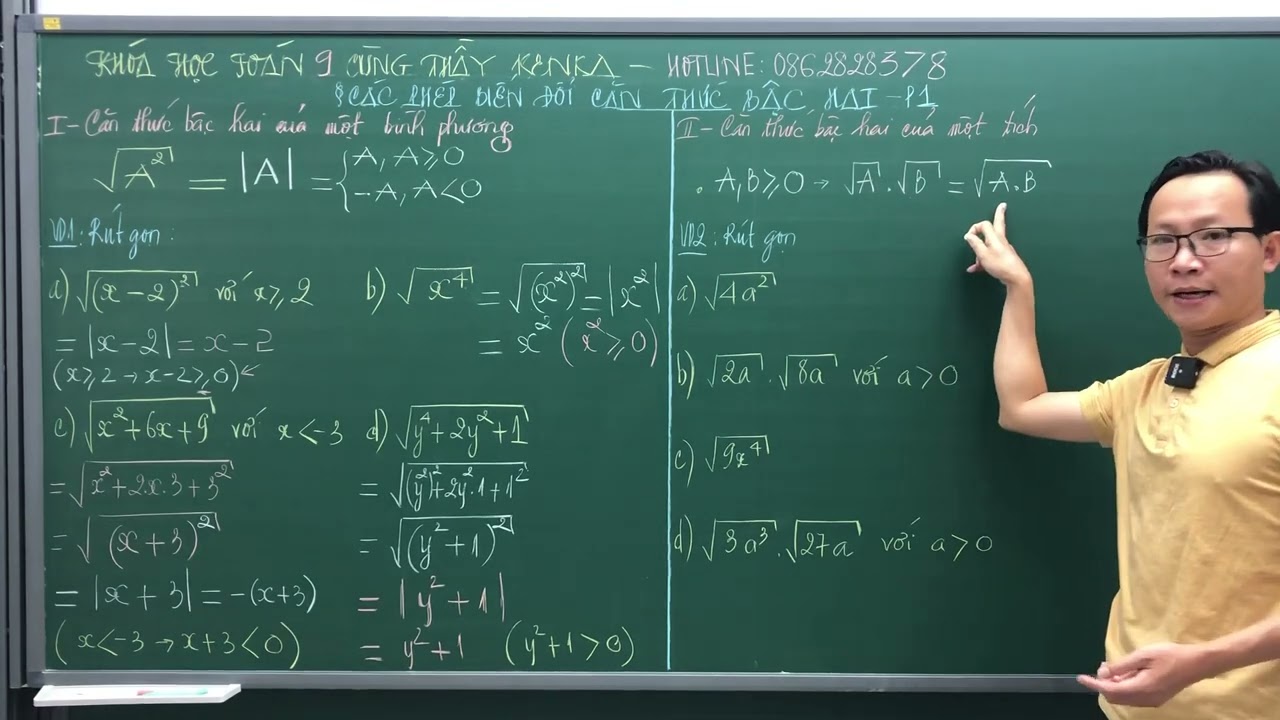 KHÓA HỌC TOÁN 9 CÙNG THẦY KENKA – HOTLINE: 0862828378
§ CÁC PHÉP BIẾN ĐỔI CĂN THỨC BẬC HAI – P1
I – Căn thức bậc hai của một bình phương
√(A²) = |A| = { A, A ≥ 0
-A, A < 0
VD1: Rút gọn:
a) √((x-2)²) với x ≥ 2
= |x-2| = x-2
(x ≥ 2 → x-2 ≥ 0) ←
b) √(x⁴) = √((x²)²) = |x²|
= x² (x² ≥ 0)
c) √(x²+6x+9) với x < -3
= √(x²+2.x.3+3²)
= √((x+3)²)
= |x+3| = -(x+3)
(x < -3 → x+3 < 0)
d) √(y⁴+2y²+1)
= √((y²)²+2y².1+1²)
= √((y²+1)²)
= |y²+1|
= y²+1 (y²+1 > 0)
II – Căn thức bậc hai của một tích
. A, B ≥ 0 → √A . √B = √(A.B)
VD2: Rút gọn
a) √(4a²)
b) √(2a) . √(8a) với a > 0
c) √(9x⁴)
d) √(3a³) . √(27a) với a > 0